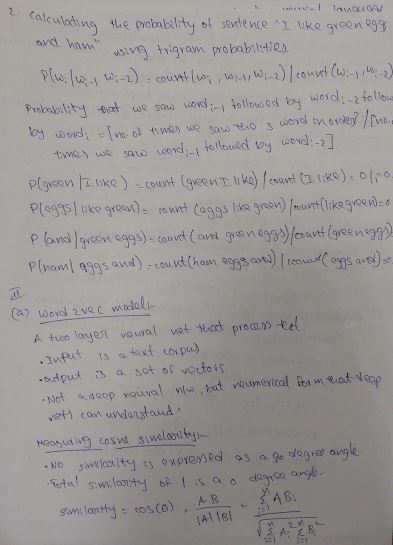 2. Calculating the probability of sentence "I like green eggs
and ham" using trigram probabilities.
P(wi/wi-1 wi-2) = count(wi, wi-1, wi-2)/count(wi-1, wi-2)
Probability that we saw wordi-1 followed by wordi-2 follow
by wordi = [no. of times we saw the 3 word in order]/[no.
times we saw wordi-1 followed by wordi-2]
P(green/I like) = count (green I like)/count (I like) = 0/1=0
P(eggs/like green) = count (eggs like green)/count(like green)=0
P(and/green eggs) = count (and green eggs)/count(green eggs)
P(ham/eggs and) = count(ham eggs and)/count(eggs and)=0
II
(a) word 2 vec model:-
A two layer neural net that process text.
• Input is a text corpus
• output is a set of vectors.
• Not a deep neural n/w, but neumerical form that deep
nets can understand.
Measuring cosne similarity:-
• No similarity is expressed as a 90 degree angle
• Total similarity of 1 is a 0 degree angle.
similarity = cos(θ) = A·B / |A||B| = Σ i=1 n ABi / √ Σ i=1 n Ai² Σ i=1 n Bi²